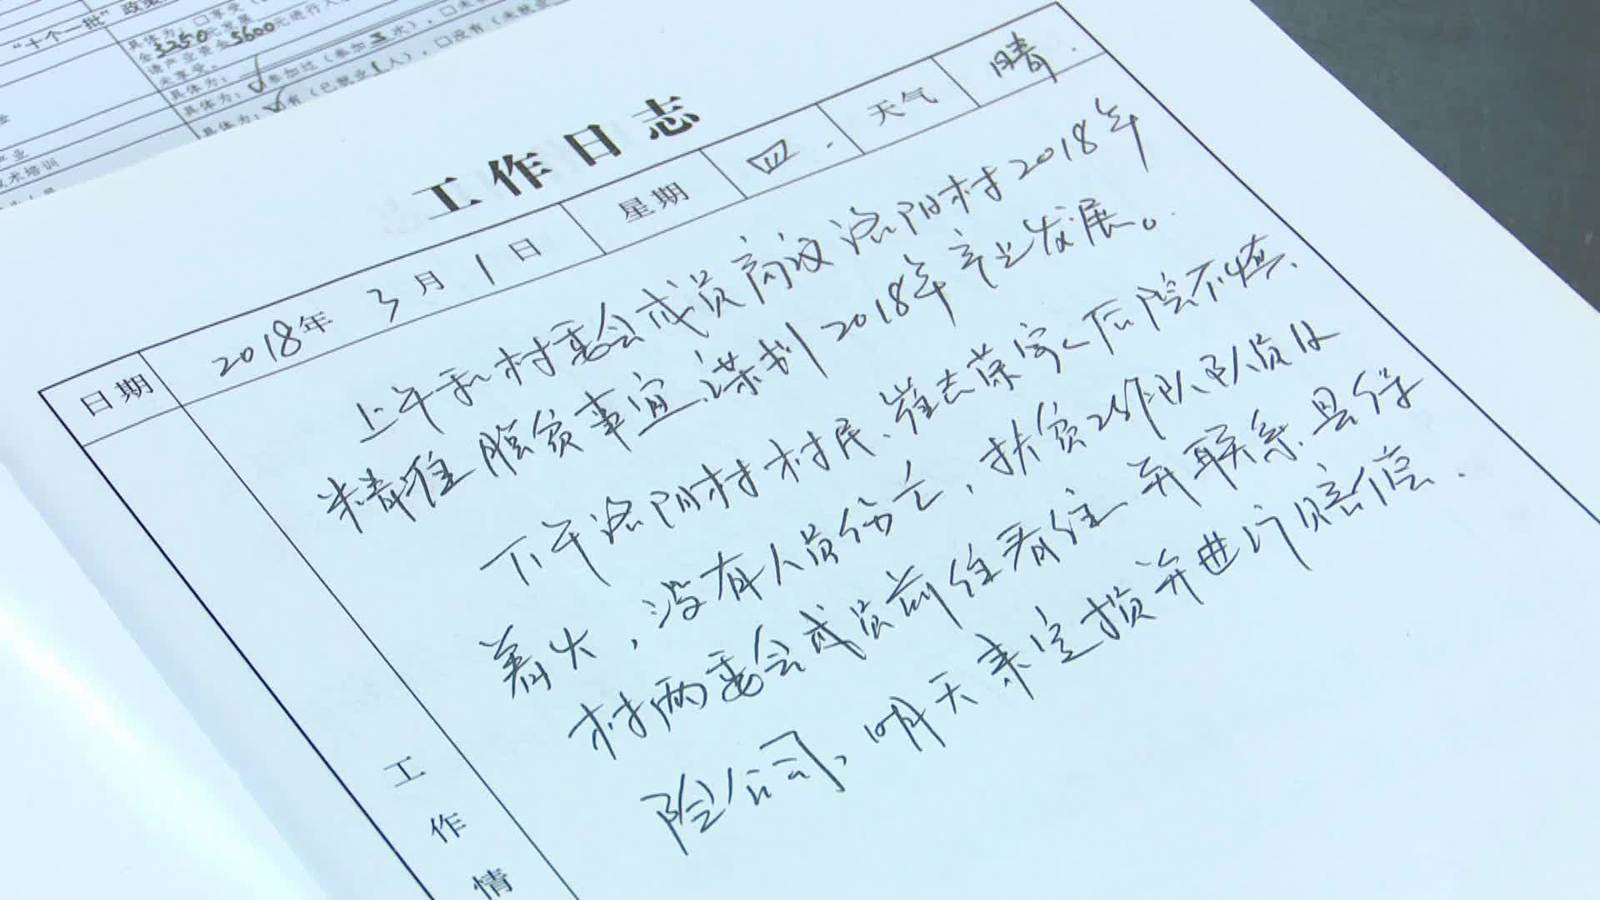 "十个一批"政策
具体为:口享受(
金3250元发展
请产业资金5600元进行入
未享受。
具体为:√参加过(参加3次),口未
具体为:√有(已就业1人),口没有(未就业
产业
术培训
工作日志
日期 2018年 3月 1日 星期 四. 天气 晴.
上午和村委会成员商议洛阳村2018年
精准脱贫事宜,谋划2018年产业发展。
下午洛阳村村民、崔志荣家人后院不慎
着火,没有人员伤亡,扶贫工作队队员以
村两委会成员前往看往并联系县保
险公司、明天来定损并进行赔偿.
工作情